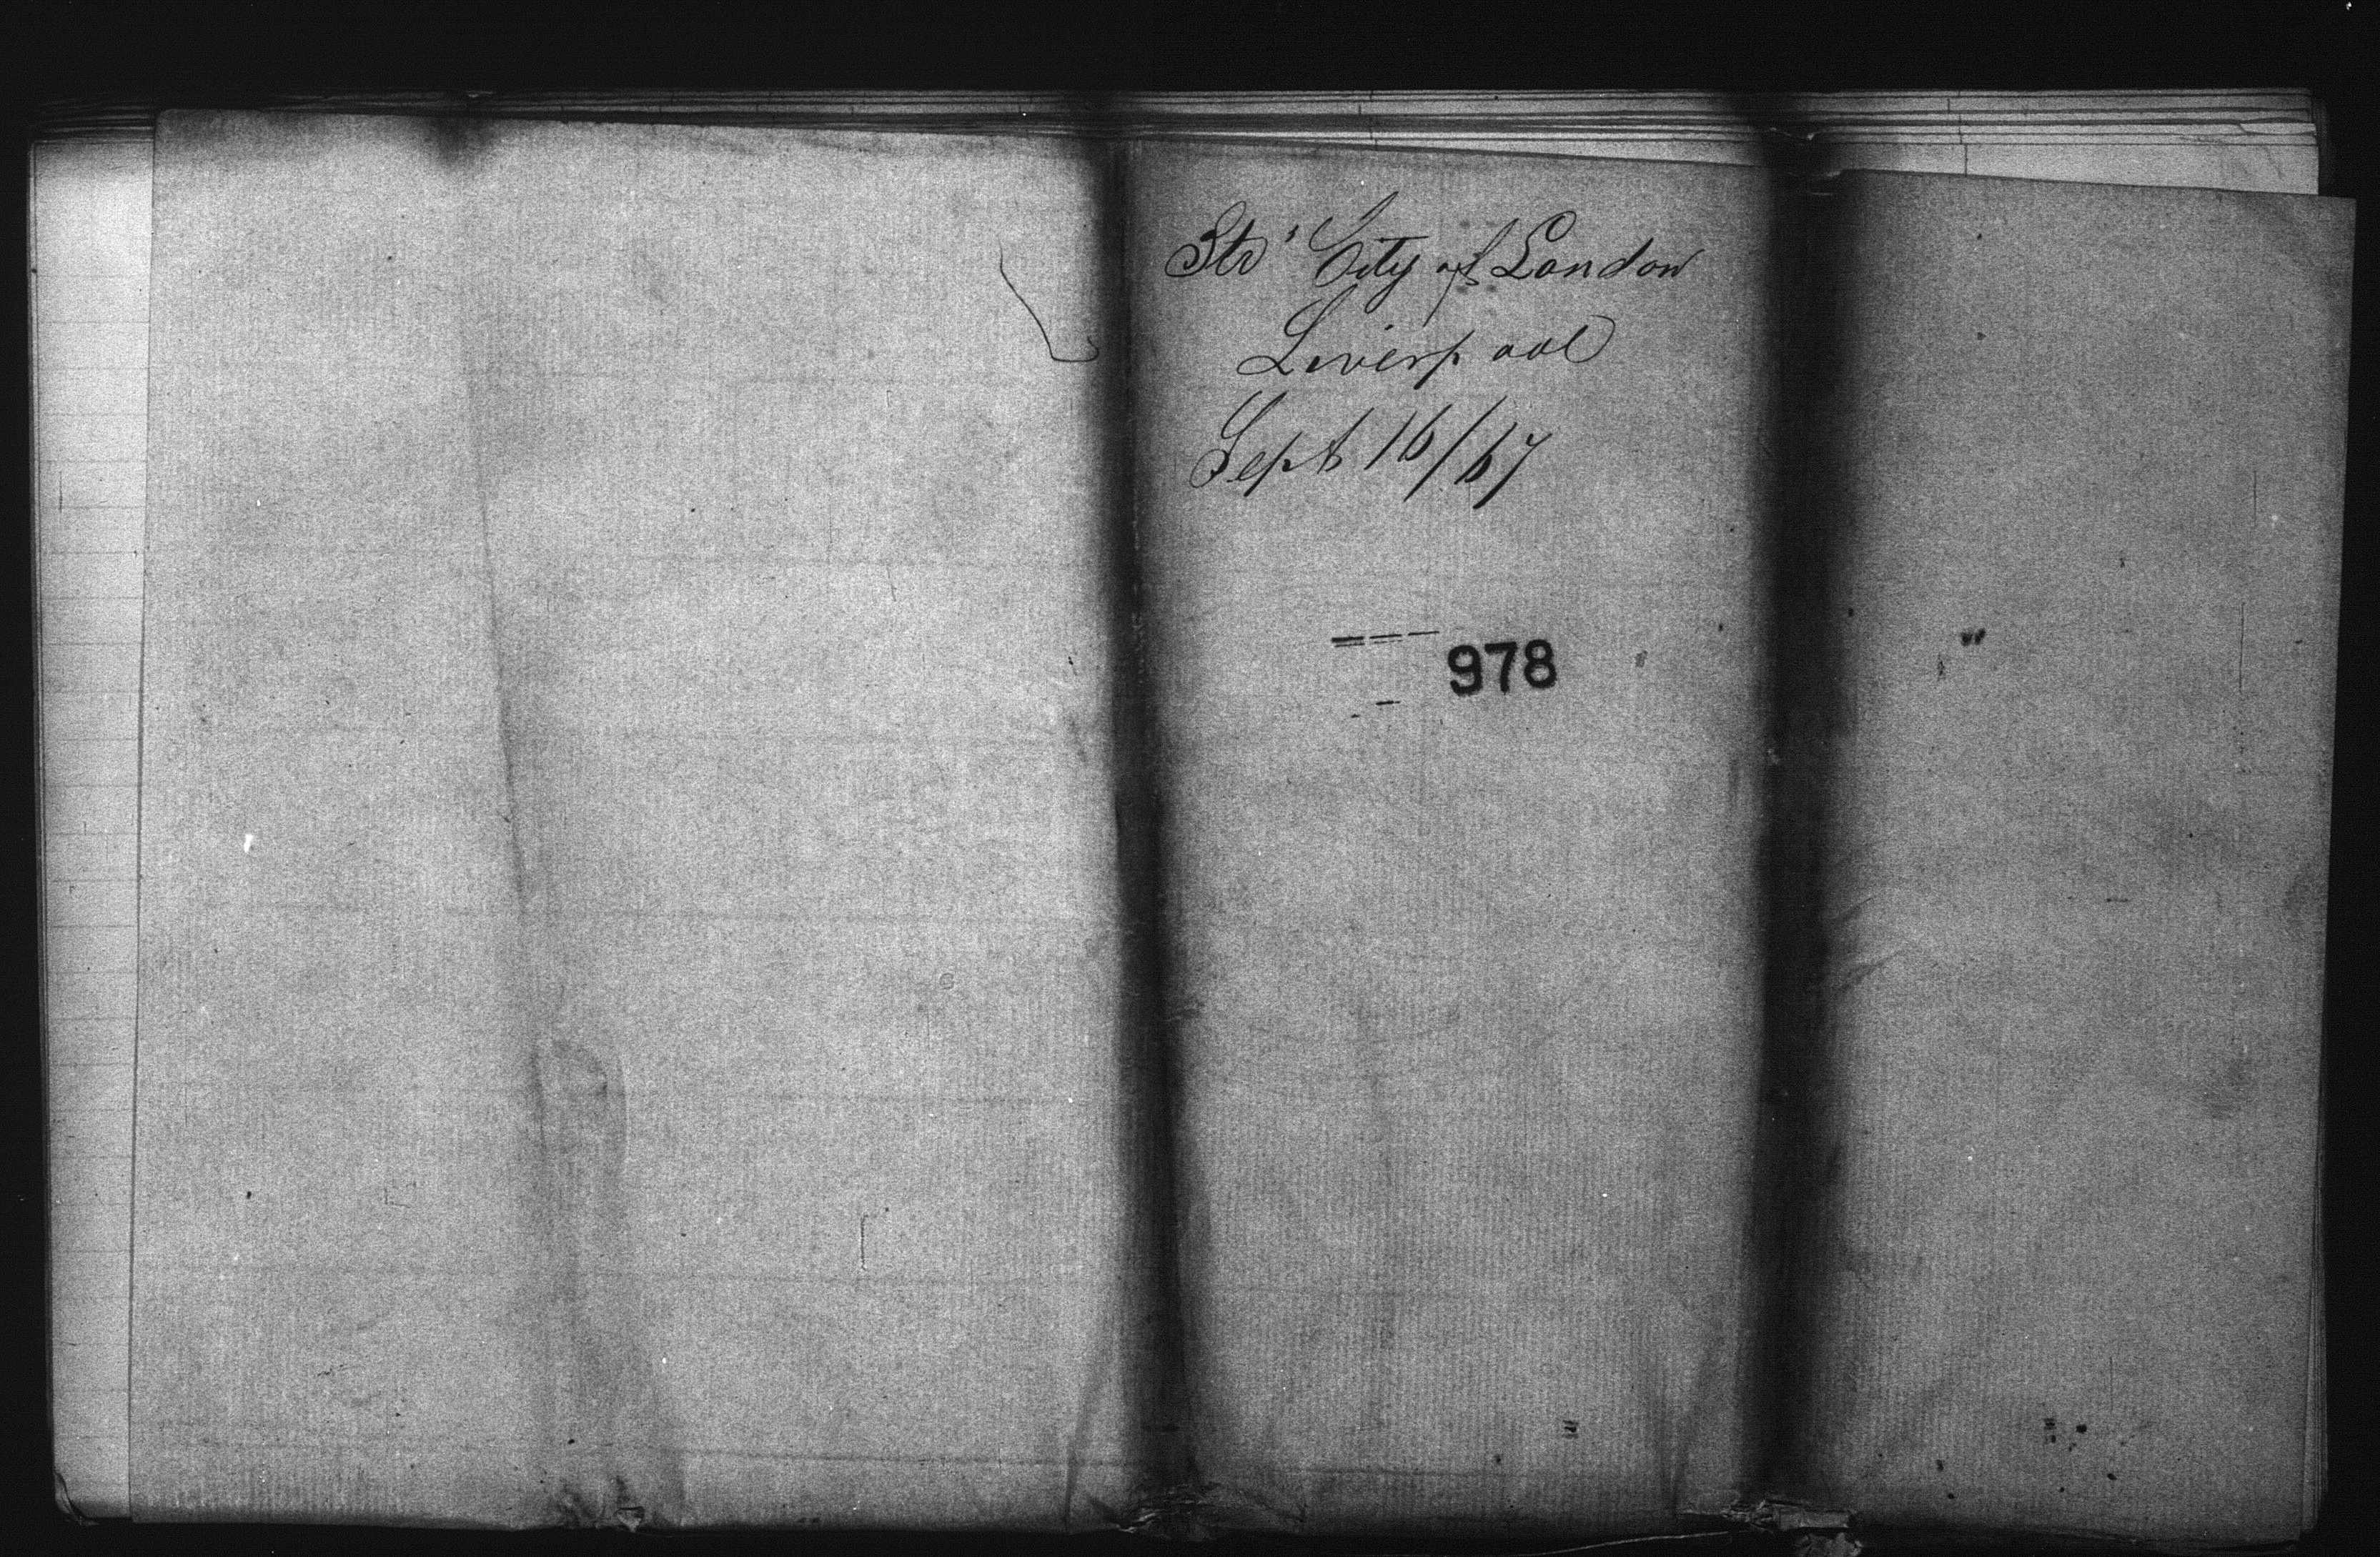 Str' City of London
Liverpool
Sept 16/67
978